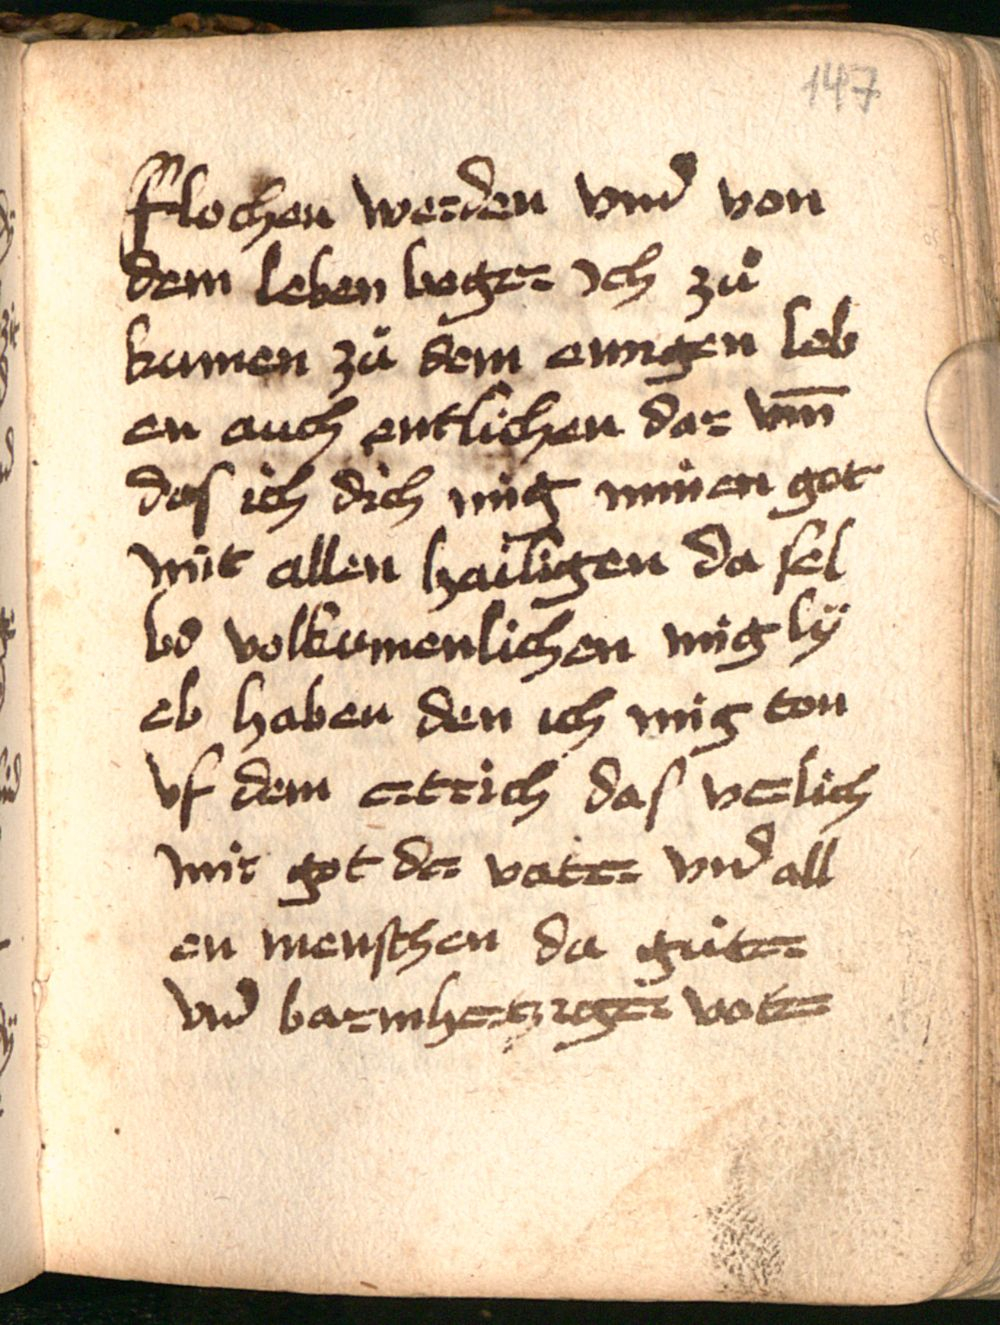 147
flochen werden vnd von
dem leben beger ich zů
kumen zů dem ewigen leb
en auch entlichen dar vm̄
das ich dich mig minen got
mit allen hailigen da sel
bs volkumenlichen mig ly
eb haben den ich mig ton
vf dem ertrich das verlich
mir got der vater vnd all
en menschen da gůter
vnd barmhertziger vater